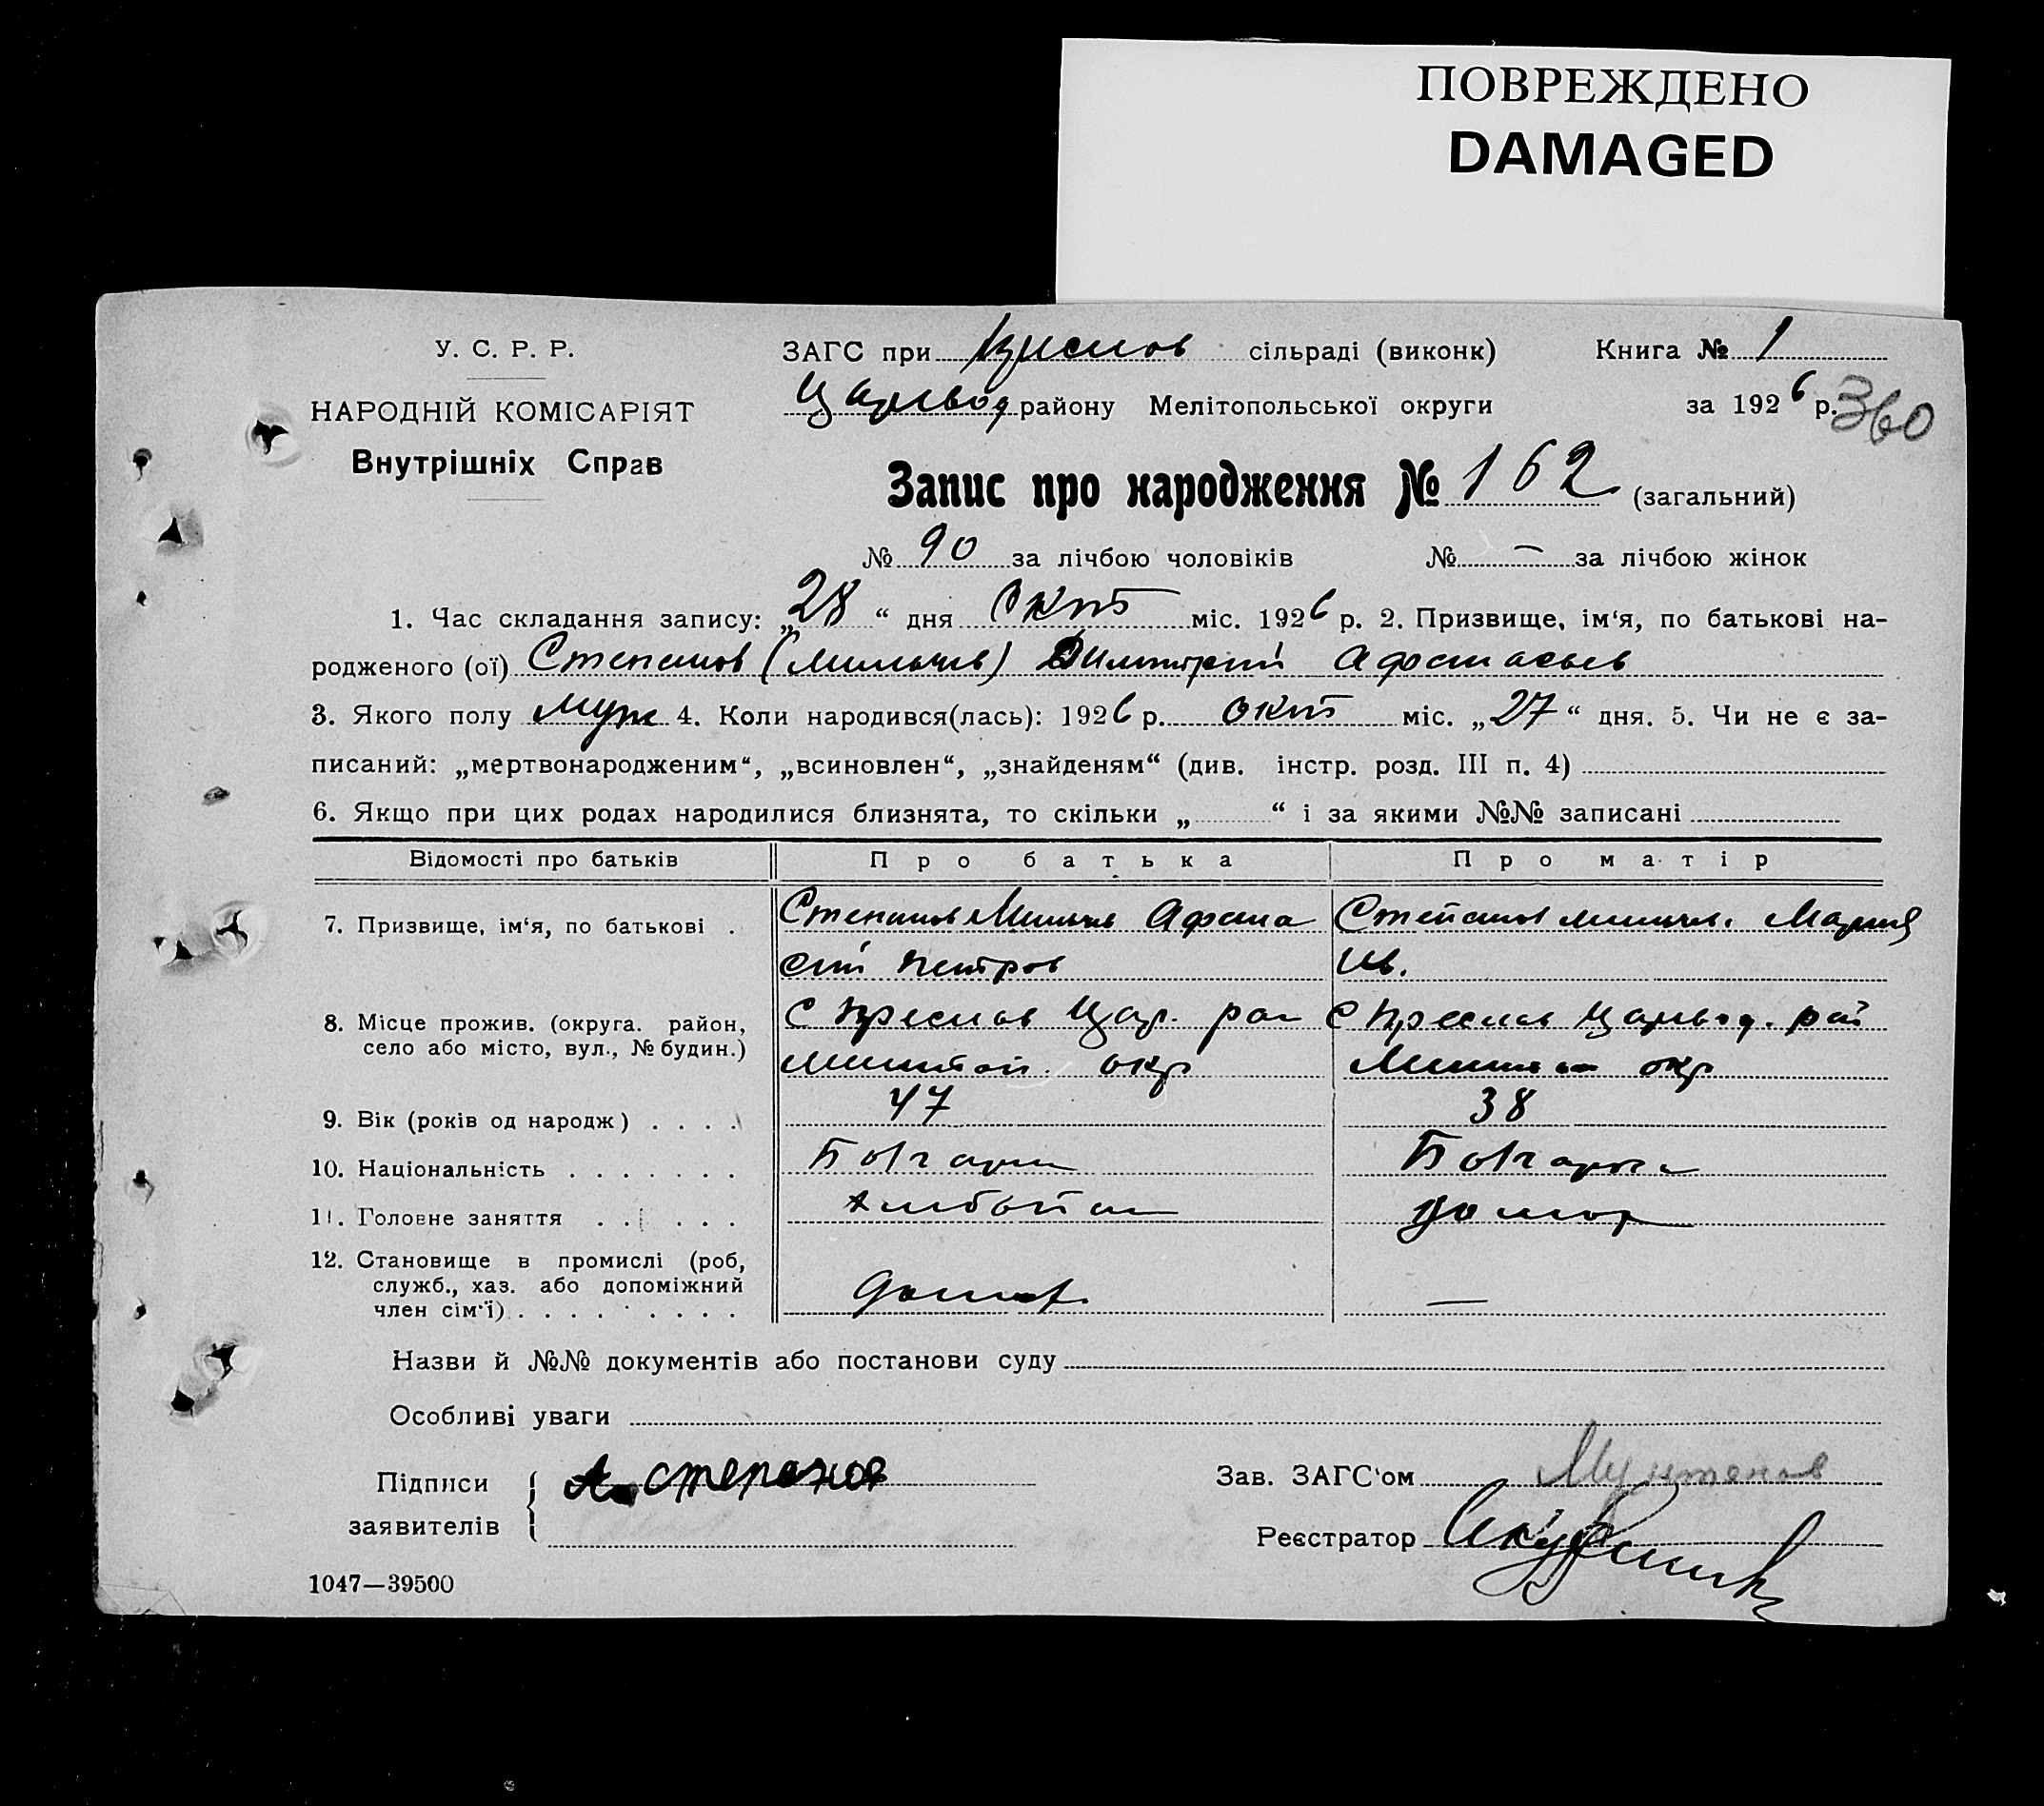 ПОВРЕЖДЕНО
DAMAGED
У. С. Р. Р.
НАРОДНІЙ КОМІСАРІЯТ
Внутрішніх Справ
ЗАГС при сільраді (виконк) Книга № 1
Царевод району Мелітопольської округи за 1926 р. 360
Запис про народження № 162 (загальний)
№ 90 за лічбою чоловіків № — за лічбою жінок
1. Час складання запису: „28“ дня Окт міс. 1926 р. 2. Призвище, ім‘я, по батькові на-
родженого (ої) Степанов ( ) Димитрий Афанасьев
3. Якого полу муж 4. Коли народився(лась): 1926 р. окт міс. „27“ дня. 5. Чи не є за-
писаний: „мертвонародженим“, „всиновлен“, „знайденям“ (див. інстр. розд. III п. 4)
6. Якщо при цих родах народилися близнята, то скільки „ “ і за якими №№ записані
Відомості про батьків Про батька Про матір
7. Призвище, ім‘я, по батькові . Степанов Афана Степанов Мария
сий Петров Ив.
8. Місце прожив. (округа. район, С Преслав Цар. рай С Преслав Царевод. рай
село або місто, вул., № будин.) окр окр
9. Вік (років од народж) . . . . 47 38
10. Національність . . . . . . . Болгарин Болгарка
11. Головне заняття . . . . .
12. Становище в промислі (роб,
служб., хаз. або допоміжний
член сім‘ї) . . . . . . . . . —
Назви й №№ документів або постанови суду
Особливі уваги
Підписи А. степанов Зав. ЗАГС‘ом
заявителів Реєстратор
1047—39500